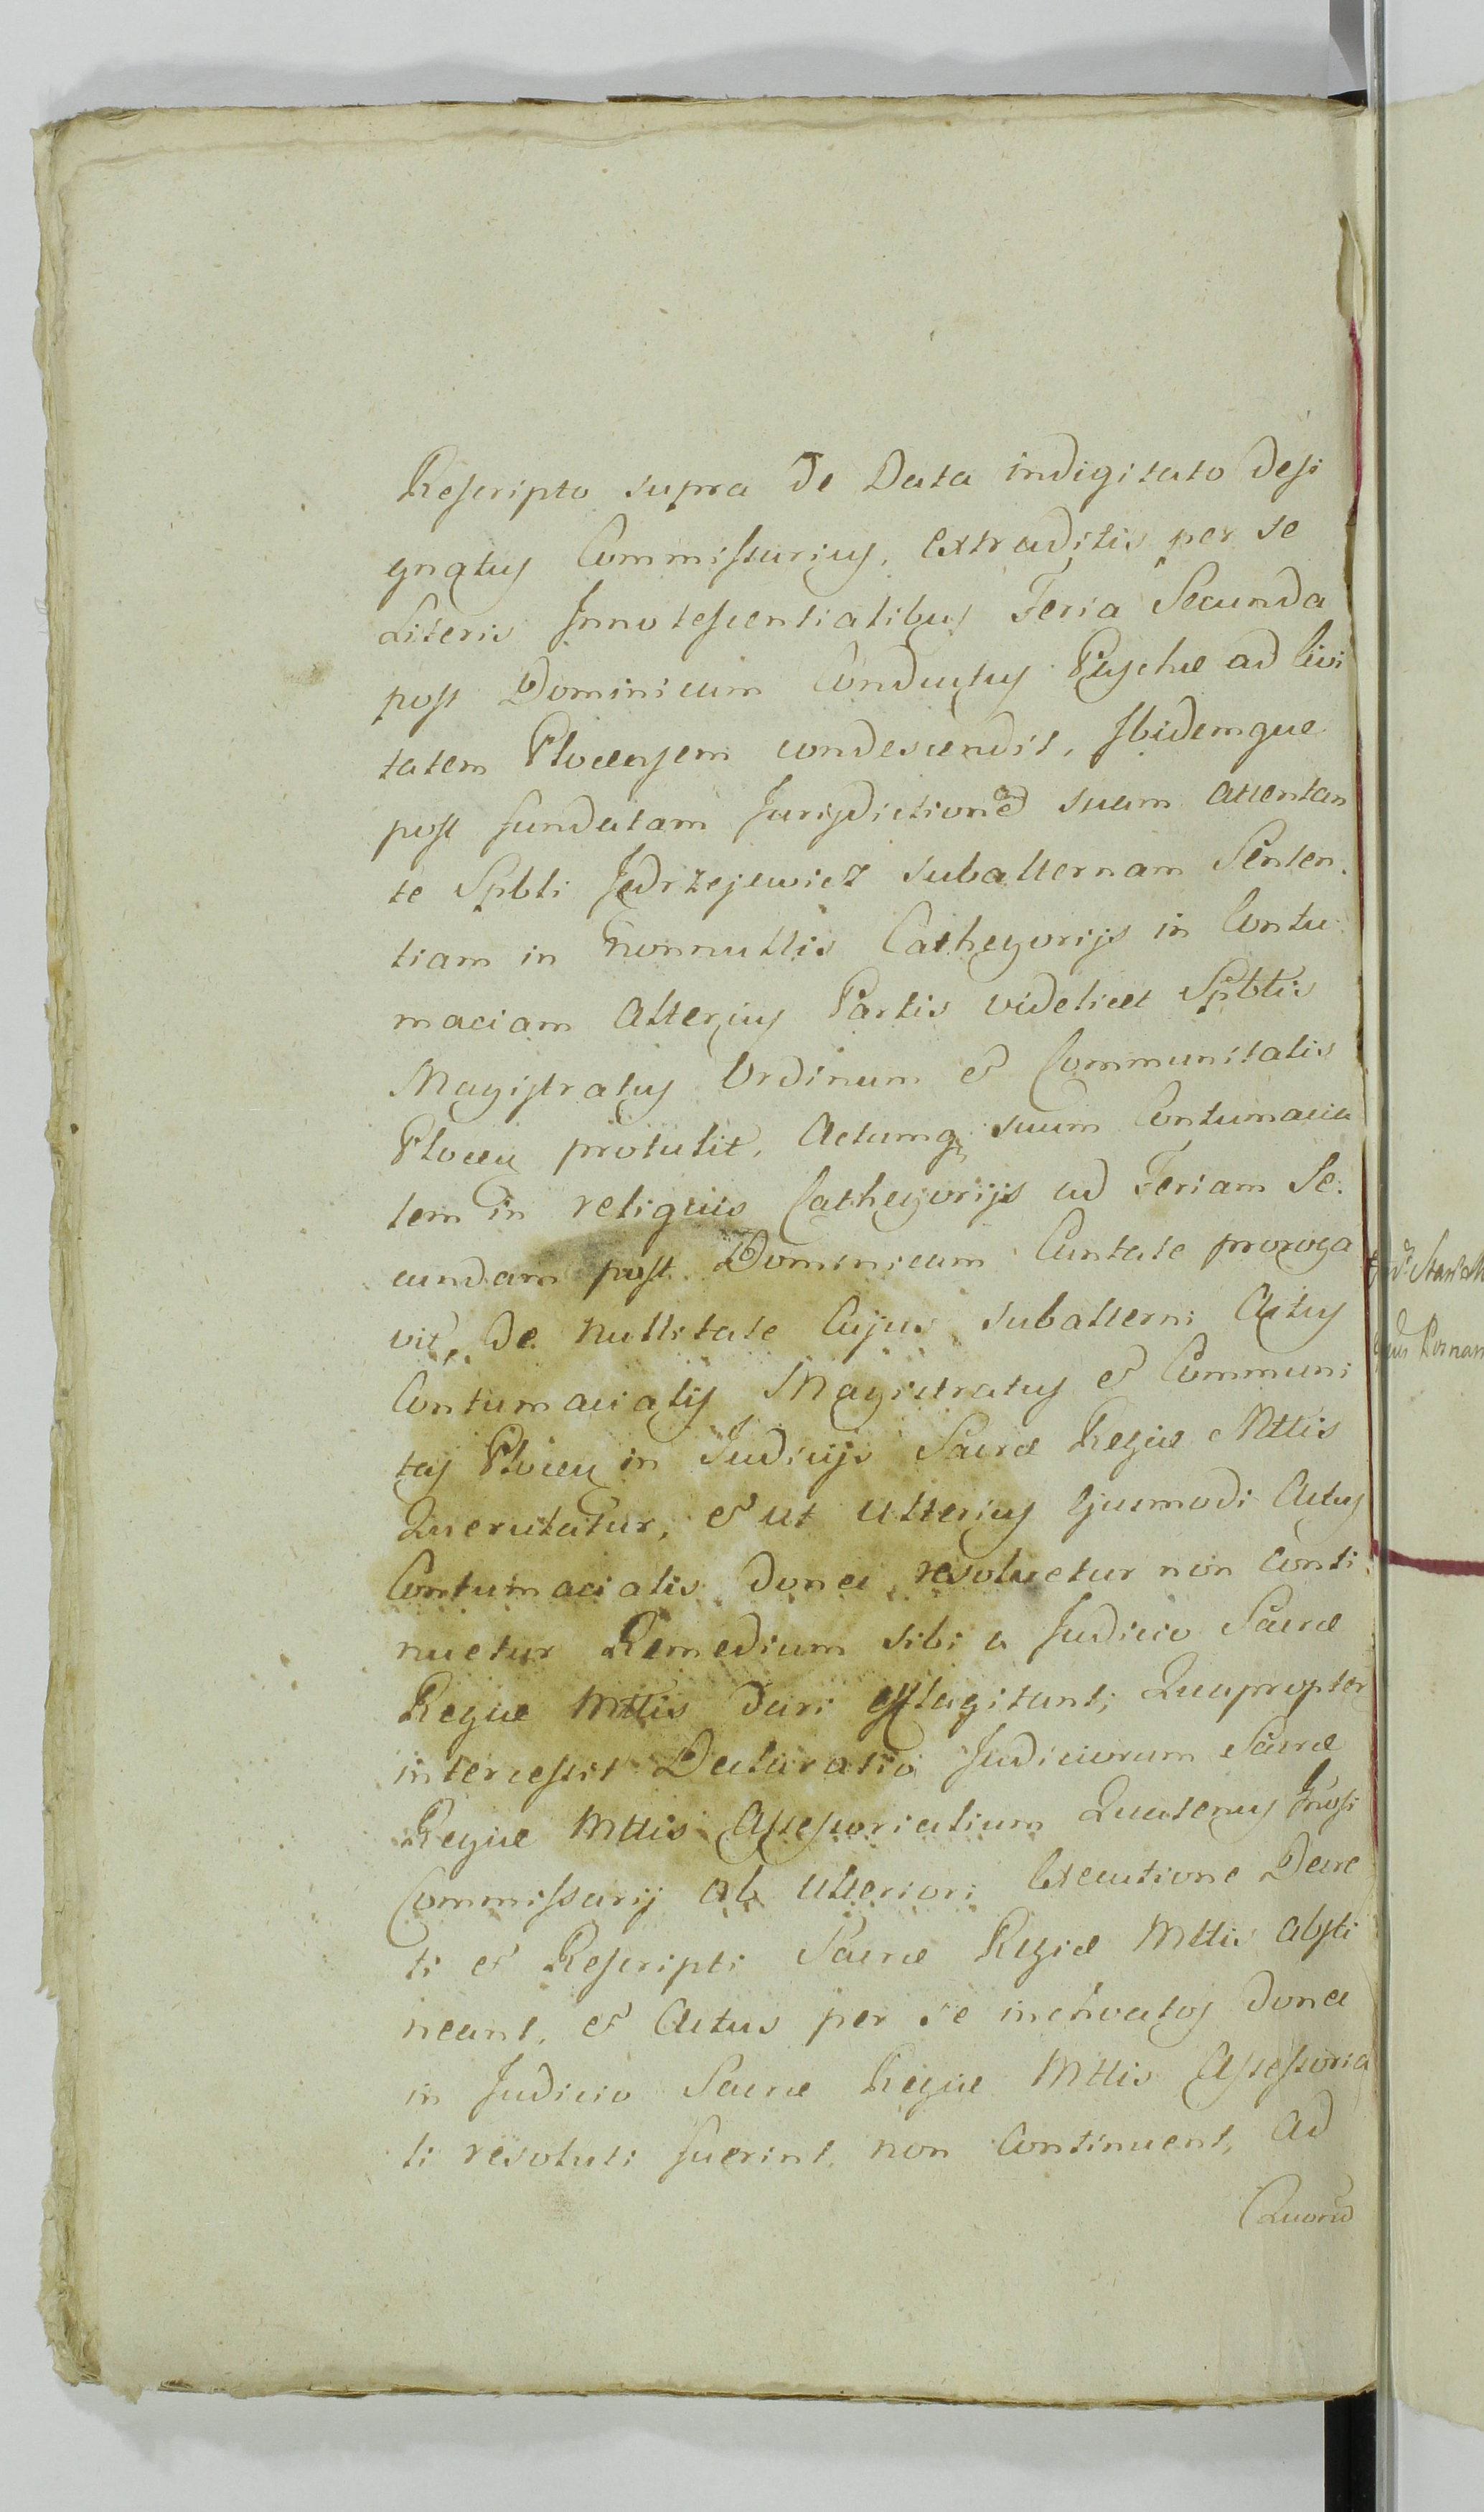 Rescripto supra de Data indigitato desi
gnatus Commissarius, extraditis per se
Literis Innotescentialibus Feria Secunda
post Dominicam Conductus Paschæ ad Civi
tatem Plocensem condescendit, Ibidemque
post fundatam Jurisdictionē suam attentan
te Spbli Jędrzejewicz subalternam Senten
tiam in nonnullis Cathegorijs in Contu
maciam Alterius Partis videlicet Spblis
Magistratus Ordinum & Communitatis
Plocen protulit, Actumq suum Contumacia
lem in reliquis Cathegorijs ad Feriam Se
cundam post Dominicam Cantate proroga
vit, de nullitate Cujus subalterni Actus
Contumacialis Magistratus & Communi
tas Plocen in Judicijs Sacræ Regiæ Mttis
Querulatur, & ut ulterius Ejusmodi Actus
Contumacialis donec resolvetur non Conti
nuetur Remedium sibi a Judicio Sacræ
Regiæ Mttis dari efflagitant; Quapropter
intercessit Declaratio Judiciorum Sacræ
Regiæ Mttis Assessorialium Quatenus
Commissarij ab Ulteriori Executione Decre
ti & Rescripti Sacræ Regiæ Mttis absti
neant, & Actus per se inchoatos donec
in Judicio Sacræ Regiæ Mttis Assessoria
li resoluti fuerint, non Continuent, Ad
Quorū